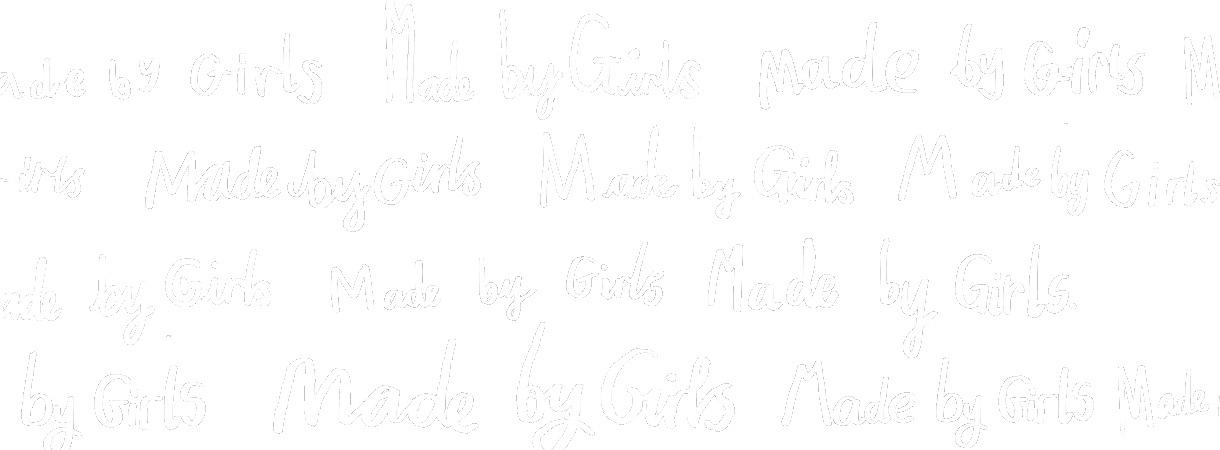 ade by Girls Made by Girls Made by Girls M
irls Made by Girls Made by Girls Made by Girls
ade by Girls Made by Girls Made by Girls.
by Girls Made by Girls Made by Girls Made